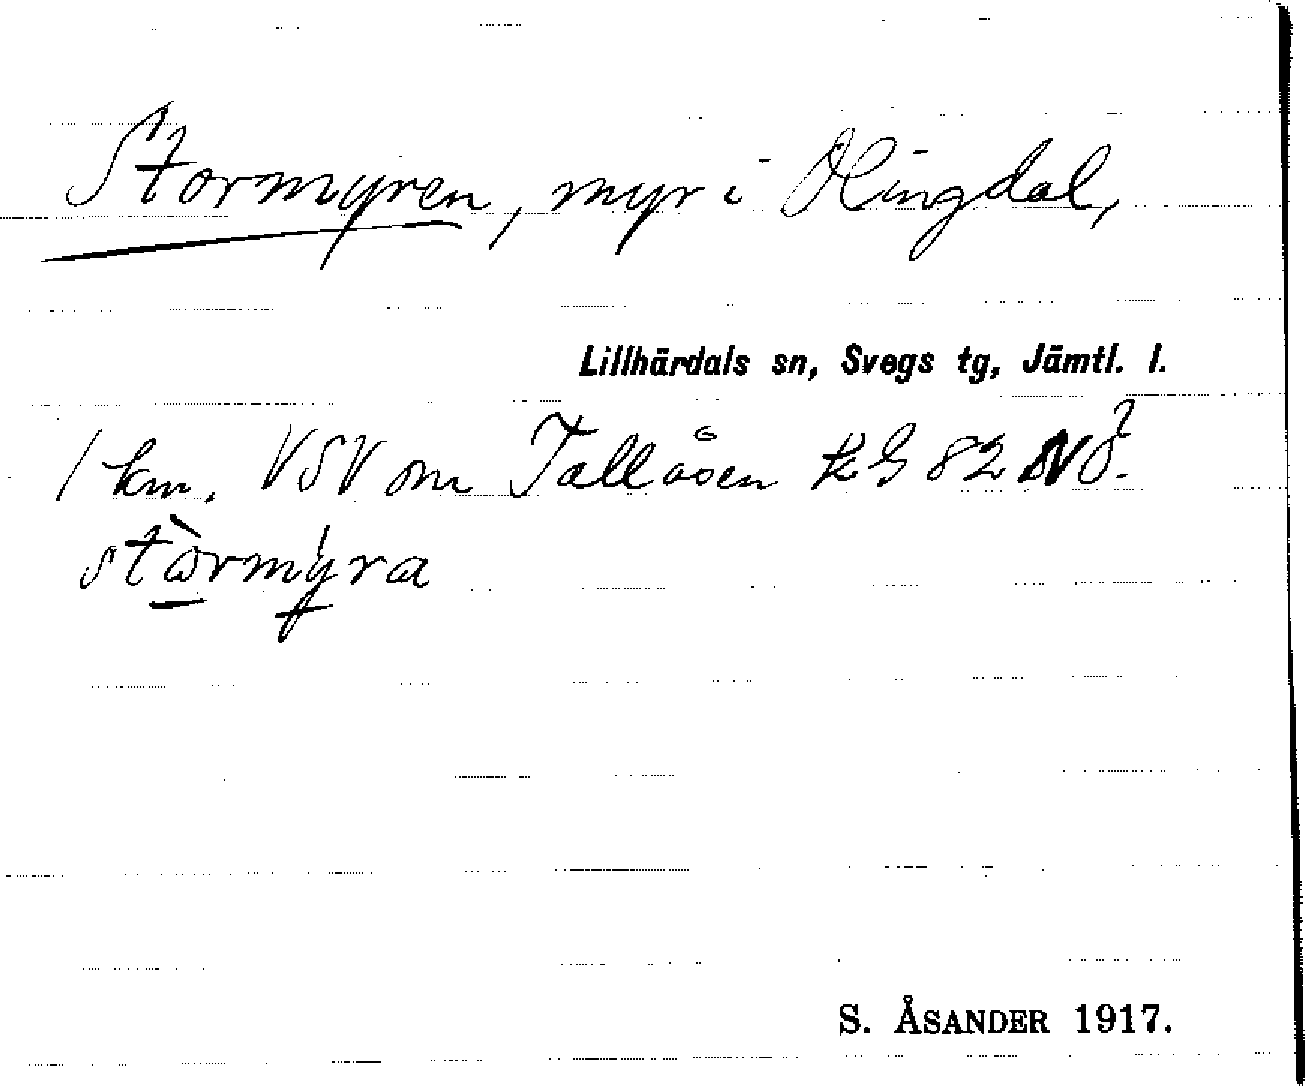 Stormyren, myr i Olingdal,
Lillhärdals sn, Svegs tg, Jämtl. l.
1 km. VSV om Tallåsen kg 82 NÖ.
stòrmýra
S. ÅSANDER 1917.